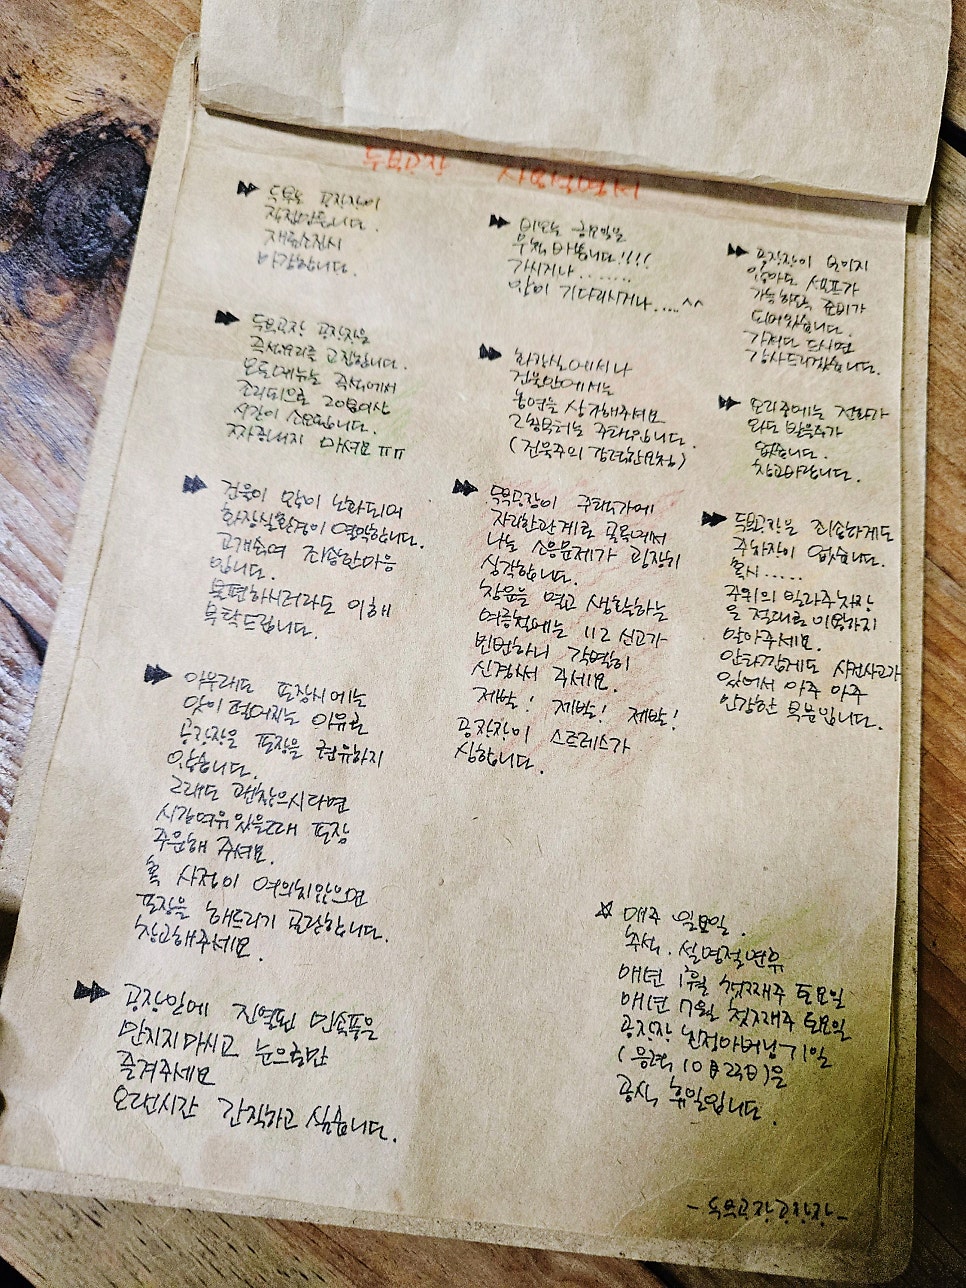 두부공장 사용설명서
두부는 공장장이
직접만듭니다.
재료소진시
마감합니다.
두부공장 공장장은
즉석요리를 고집합니다.
모든메뉴는 즉석에서
조리되므로 20분이상
시간이 소요됩니다.
짜증내지 마세요 ㅠㅠ
건물이 많이 노화되어
화장실환경이 열악합니다.
고개숙여 죄송한마음
입니다.
불편하시더라도 이해
부탁드립니다.
아무래도 포장시에는
맛이 떨어지는 이유로
공장장은 포장을 권유하지
않습니다.
그래도 괜찮으시다면
시간여유 있을때 포장
주문해 주세요.
혹 사정이 여의치않으면
포장을 해드리기 곤란합니다.
참고해주세요.
공장안에 진열된 민속품은
만지지마시고 눈으로만
즐겨주세요
오랜시간 간직하고 싶습니다.
비오는 금요일은
무척 바쁩니다!!!
가시거나........
많이 기다리시거나....^^
화장실에서나
건물안에서는
흡연을 삼가해주세요
2층부터는 주택입니다.
(건물주의 강력한요청)
두부공장이 주택가에
자리한관계로 골목에서
나는 소음문제가 굉장히
심각합니다.
창문을 열고 생활하는
여름철에는 112 신고가
빈번하니 각별히
신경써 주세요.
제발! 제발! 제발!
공장장이 스트레스가
심합니다.
공장장이 보이지
않아도 셀프가
가능하도록 준비가
되어있습니다.
가져다 드시면
감사드리겠습니다.
요리중에는 전화가
와도 받을수가
없습니다.
참고바랍니다.
두부공장은 죄송하게도
주차장이 없습니다.
혹시.....
주위의 빌라주차장
을 절대로이용하지
말아주세요.
안타깝게도 사건사고가
있어서 아주 아주
민감한 부분입니다.
☆ 매주 일요일.
추석. 설명절연휴
매년 1월 첫째주 토요일
매년 7월 첫째주 토요일
공장장 친정아버님기일
(음력 10월23일)은
공식 휴일입니다.
- 두부공장공장장 -